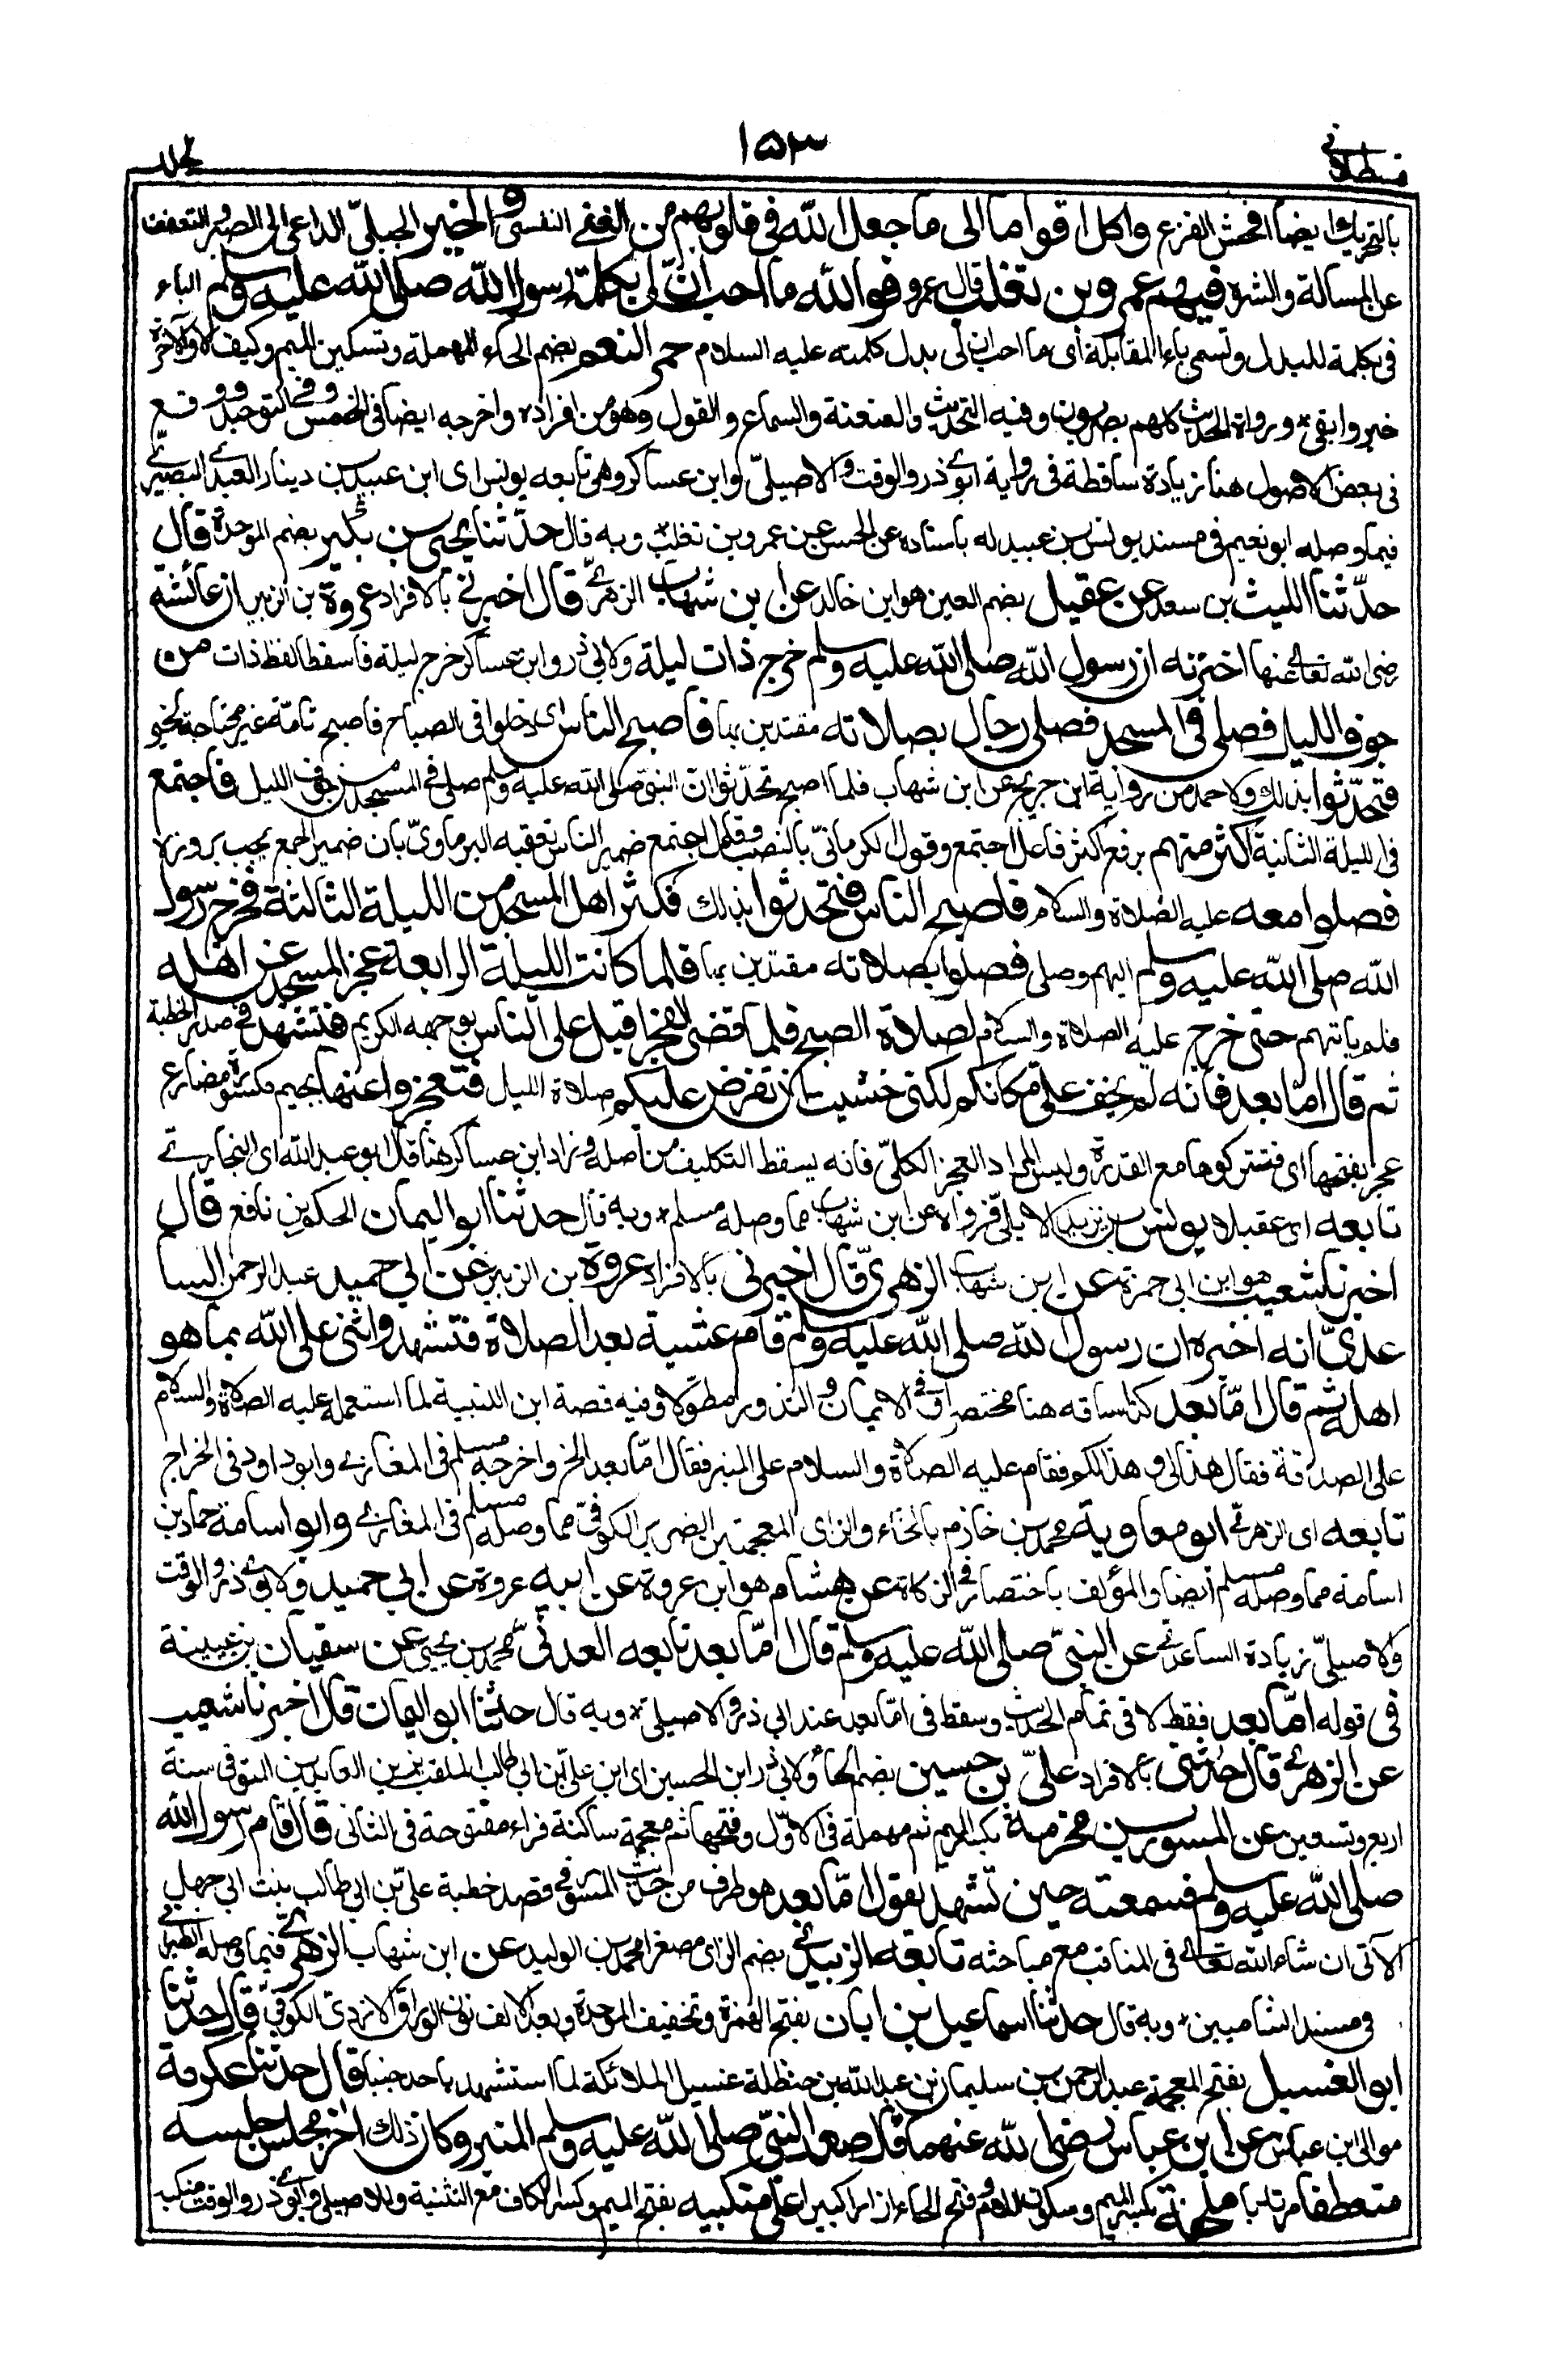 قسطلانی
١٥٣
جلد
بالتحريك ايضا افحش الفزع واكل اقواما الى ما جعل الله فى قلوبهم من الغنى النفسى والخير الجبلىّ الداعى الى الصبر والتعفف
عن المسالة والشره فيهم عمرو بن تغلب قال عمرو فوالله ما احب ان لى بكلمة رسول الله صلى الله عليه وسلم الباء
فى بكلمة للبدل وتسمى باء المقابلة اى ما احب ان لى بدل كلمته عليه السلام حمر النعم بضم الحاء المهملة وتسكين الميم وكيف لا والآخرة
خير وابقى* ورواة الحديث كلهم بصريون وفيه التحديث والعنعنة والسماع والقول وهو من افراده واخرجه ايضا فى الخمس وفى التوحيد ووقع
فى بعض الاصول هنا زيادة ساقطة فى رواية ابوى ذر والوقت والاصيلىّ وابن عساكر وهى تابعه يونس اى ابن عبيد بن دينار العبدى البصرىّ
فيما وصله ابو نعيم فى مسند يونس بن عبيد له باسناده عن الحسن عن عمرو بن تغلب* وبه قال حدّثنا يحيى بن بكير بضم الموحدة قال
حدّثنا الليث بن سعد عن عقيل بضم العين هو ابن خالد عن ابن شهاب الزهرىّ قال اخبرنى بالافراد عروة بن الزبير ان عائشة
رضى الله تعالى عنها اخبرته ان رسول الله صلى الله عليه وسلم خرج ذات ليلة ولابى ذر وابن عساكر خرج ليلة فاسقط لفظ ذات من
جوف الليل فصلى فى المسجد فصلى رجال بصلاته مقتدين بها فاصبح الناس اى دخلوا فى الصباح فاصبح تامّة غير محتاجة لخبر
فتحدّثوا بذلك ولاحمد من رواية ابن جريج عن ابن شهاب فلما اصبح تحدّثوا ان النبىّ صلى الله عليه وسلم صلى فى المسجد من جوف الليل فاجتمع
فى الليلة الثانية اكثر منهم برفع اكثر فاعل اجتمع وقول الكرمانىّ بالنصب وفاعل اجتمع ضمير الناس تعقبه البرماوىّ بان ضمير الجمع يجب بروزه
فصلوا معه عليه الصلاة والسلام فاصبح الناس فتحدثوا بذلك فكثر اهل المسجد من الليلة الثالثة فخرج رسول
الله صلى الله عليه وسلم اليهم وصلى فصلوا بصلاته مقتدين بها فلما كانت الليلة الرابعة عجز المسجد عن اهله
فلم ياتهم حتى خرج عليه الصلاة والسلام لصلاة الصبح فلما قضى الفجر اقبل على الناس بوجهه الكريم فتشهد فى صدر الخطبة
ثم قال امّا بعد فانه لم يخف علىّ مكانكم لكنى خشيت ان تفرض عليكم صلاة الليل فتعجزوا عنها بجيم مكسورة مضارع
عجز بفتحها اى فتتركوها مع القدرة وليس المراد العجز الكلىّ فانه يسقط التكليف من اصله وزاد ابن عساكر هنا قال ابو عبد الله اى البخارى
تابعه اى عقيلا يونس بن يزيد الايلىّ فرواه عن ابن شهاب مما وصله مسلم* وبه قال حدثنا ابو اليمان الحكم بن نافع قال
اخبرنا شعيب هو ابن ابى حمزة عن ابن شهاب الزهرىّ قال اخبرنى بالافراد عروة بن الزبير عن ابى حميد عبد الرحمن السا
عدىّ انه اخبره ان رسول الله صلى الله عليه وسلم قام عشية بعد الصلاة فتشهد واثنى على الله بما هو
اهله ثم قال امّا بعد كذا ساقه هنا مختصرا وفى الايمان والنذور مطوّلا وفيه قصة ابن اللتبية لما استعمله عليه الصلاة والسلام
على الصدقة فقال هذا لى وهذا لكم فقام عليه الصلاة والسلام على المنبر فقال امّا بعد الخ واخرجه مسلم فى المغازى وابو داود فى الخراج
تابعه اى الزهرى ابو معاوية محمد بن خازم بالخاء والزاى المعجمتين الضرير الكوفىّ مما وصله مسلم فى المغازى وابو اسامة حماد بن
اسامة مما وصله مسلم ايضا والمؤلف باختصار فى الزكاة عن هشام هو ابن عروة عن ابيه عروة عن ابى حميد ولابوى ذر والوقت
والاصيلىّ زيادة الساعدى عن النبىّ صلى الله عليه وسلم قال امّا بعد تابعه العدنىّ محمد بن يحيى عن سفيان بن عيينة
فى قوله امّا بعد فقط لا فى تمام الحديث وسقط فى امّا بعد عند ابى ذر والاصيلى* وبه قال حدّثنا ابو اليمان قال اخبرنا شعيب
عن الزهرى قال حدّثنى بالافراد علىّ بن حسين بضم الحاء ولابى ذر ابن الحسين اى ابن علىّ بن ابى طالب الملقب بزين العابدين المتوفى سنة
اربع وتسعين عن المسور بن مخرمة بكسر الميم ثم مهملة فى الاوّل وفتحها ثم معجمة ساكنة فراء مفتوحة فى الثانى قال قام رسول الله
صلى الله عليه وسلم فسمعته حين تشهد يقول امّا بعد هو طرف من حديث المسور فى قصد خطبة علىّ بن ابى طالب بنت ابى جهل
الآتى ان شاء الله تعالى فى المناقب مع مباحثه تابعه الزبيدى بضم الزاى مصغرا محمد بن الوليد عن ابن شهاب الزهرىّ فيما وصله الطبرانى
فى مسند الشاميين* وبه قال حدثنا اسماعيل بن ابان بفتح الهمزة وتخفيف الموحدة وبعد الالف نون الوراق الازدىّ الكوفىّ قال حدثنا
ابو الغسيل بفتح المعجمة عبد الرحمن بن سليمان بن عبد الله بن حنظلة غسيل الملائكة لما استشهد باحد جنبا قال حدثنا عكرمة
مولى ابن عباس عن ابن عباس رضى الله عنهما قال صعد النبىّ صلى الله عليه وسلم المنبر وكان ذلك اخر مجلس جلسه
متعطفا مرتديا ملحفة بكسر الميم وسكون اللام وفتح الحاء ازارا كبيرا على منكبيه بفتح الميم وكسر الكاف مع التثنية وللاصيلى وابوى ذر والوقت منكبه